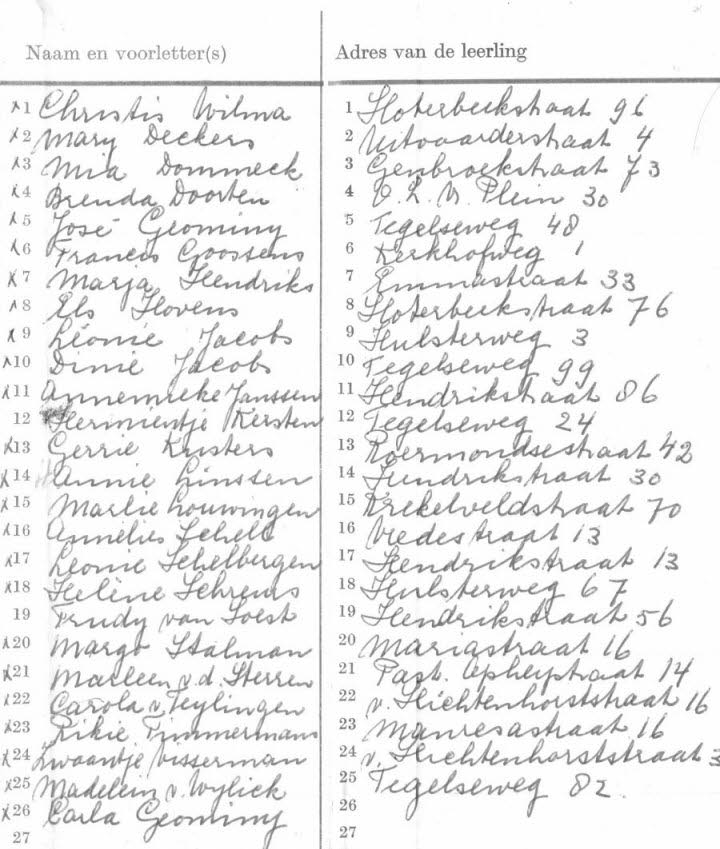 Naam en voorletter(s) Adres van de leerling
x1 Christis Wilma 1 Sloterbeekstraat 96
x2 Mary Deckers 2 Uitvaarderstraat 4
x3 Mia Dommeck 3 Genbroekstraat 73
x4 Brenda Doorten 4 O. L. V. Plein 30
x5 José Geominy 5 Tegelseweg 48
x6 Francis Goossens 6 Kerkhofweg 1
x7 Marja Hendriks 7 Emmastraat 33
x8 Els Hovens 8 Sloterbeekstraat 76
x9 Léonie Jacobs 9 Hulsterweg 3
x10 Dinie Jacobs 10 Tegelseweg 99
x11 Annemieke Janssen 11 Hendrikstraat 86
12 Hermientje Kersten 12 Tegelseweg 24
x13 Gerrie Kusters 13 Roermondsestraat 42
x14 Annie Linssen 14 Hendrikstraat 30
x15 Marlie Louwingen 15 Krekelveldstraat 70
x16 Annelies Schell 16 Vredestraat 13
x17 Leonie Schelbergen 17 Hendrikstraat 13
x18 Helène Schreurs 18 Hulsterweg 67
19 Trudy van Soest 19 Hendrikstraat 56
x20 Margo Stalman 20 Mariastraat 16
x21 Marleen v.d. Sterren 21 Past. 14
x22 Carola v. Teylingen 22 v. Slichtenhorststraat 16
x23 Rikie Timmermans 23 Manresastraat 16
x24 Zwaantje Visserman 24 v. Slichtenhorststraat 3
x25 Madelein v. Wylick 25 Tegelseweg 82.
x26 Carla Geominy 26
27 27